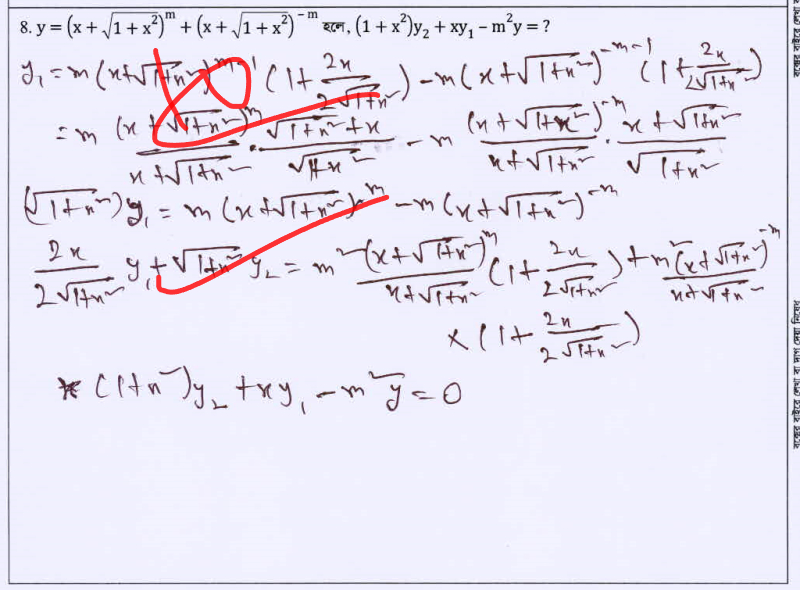 8. y = (x + √(1 + x²))^m + (x + √(1 + x²))^−m হলে, (1 + x²)y₂ + xy₁ − m²y = ?
y₁ = m(x+√(1+x²))^(m−1) (1 + 2x/(2√(1+x²))) − m(x+√(1+x²))^(−m−1) (1 + 2x/(2√(1+x²)))
= m (x+√(1+x²))^m/(x+√(1+x²)) · (√(1+x²)+x)/√(1+x²) − m (x+√(1+x²))^−m/(x+√(1+x²)) · (x+√(1+x²))/√(1+x²)
(√(1+x²))y₁ = m(x+√(1+x²))^m − m(x+√(1+x²))^−m
2x/(2√(1+x²)) y₁ + √(1+x²) y₂ = m² (x+√(1+x²))^m/(x+√(1+x²)) (1 + 2x/(2√(1+x²))) + m² (x+√(1+x²))^−m/(x+√(1+x²))
× (1 + 2x/(2√(1+x²)))
(1+x²)y₂ + xy₁ − m²y = 0